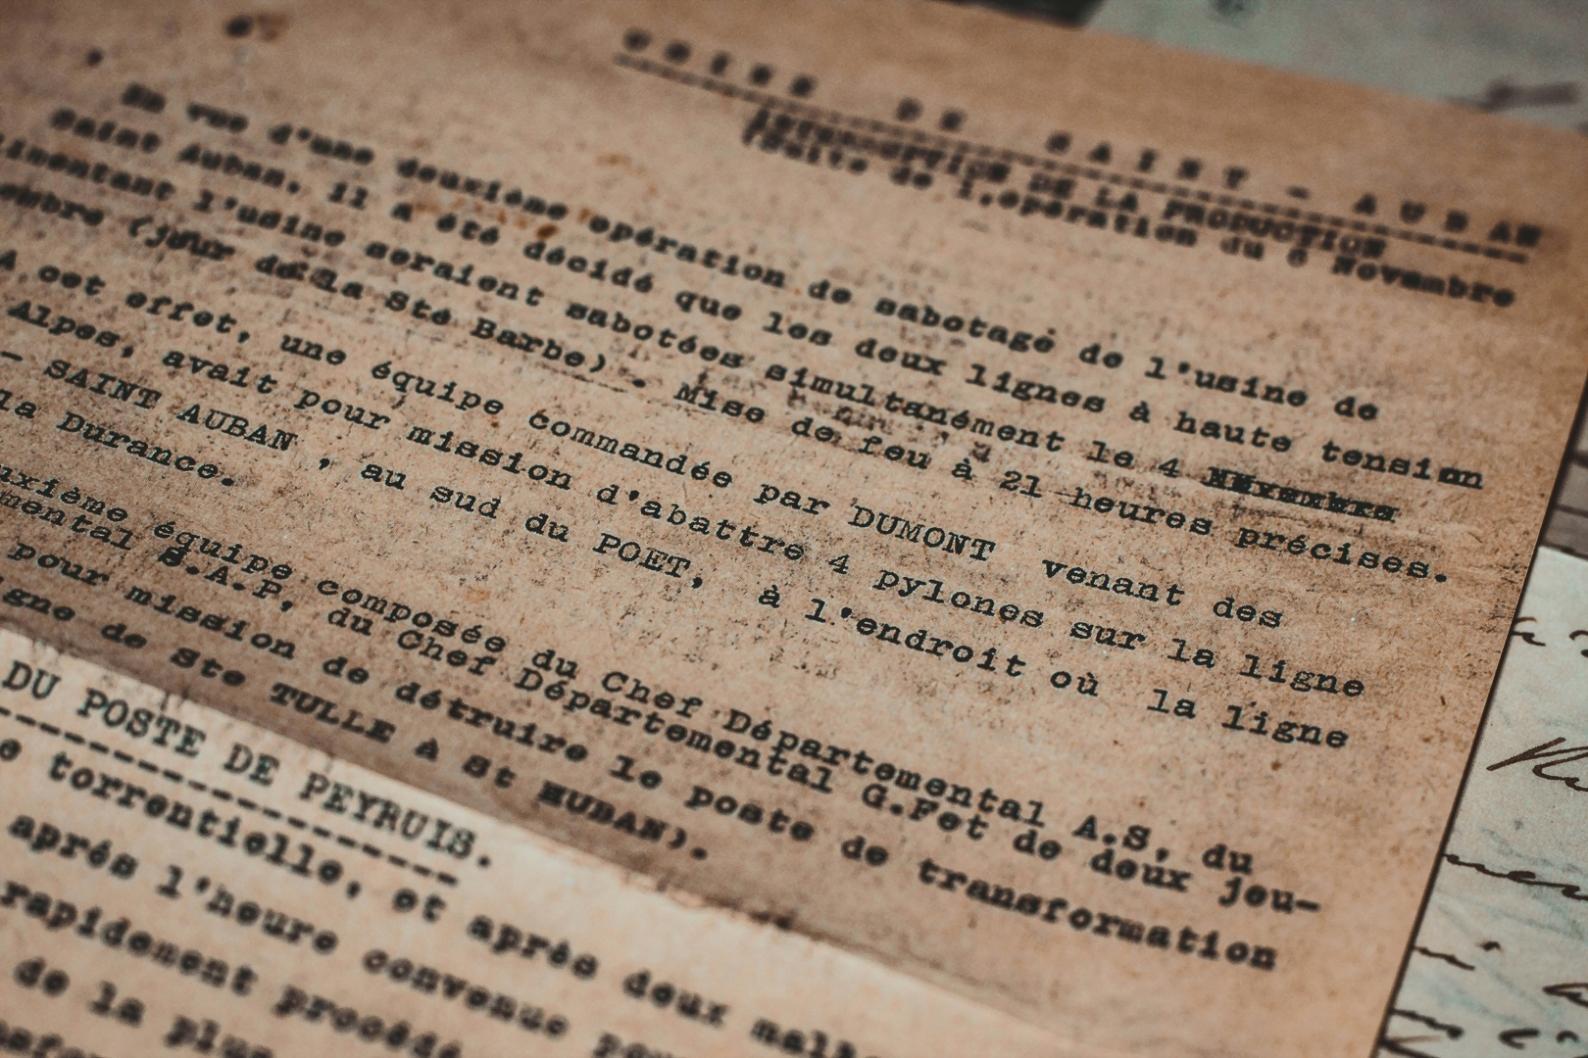 USINE DE SAINT-AUBAN
INTERRUPTION DE LA PRODUCTION
(Suite de l'opération du 6 Novembre
En vue d'une deuxième opération de sabotage de l'usine de
Saint Auban, il a été décidé que les deux lignes à haute tension
imentant l'usine seraient sabotées simultanément le 4
embre (jour de la Sté Barbe). Mise de feu à 21 heures précises.
A cet effet, une équipe commandée par DUMONT venant des
Alpes, avait pour mission d'abattre 4 pylones sur la ligne
- SAINT AUBAN, au sud du POET, à l'endroit où la ligne
la Durance.
uxième équipe composée du Chef Départemental A.S, du
mental S.A.P, du Chef Départemental G.F et de deux jeu-
pour mission de détruire le poste de transformation
gne de Ste TULLE à St AUBAN).
DU POSTE DE PEYRUIS.
e torrentielle, et après deux
aprés l'heure convenue
rapidement procédé
de la plus